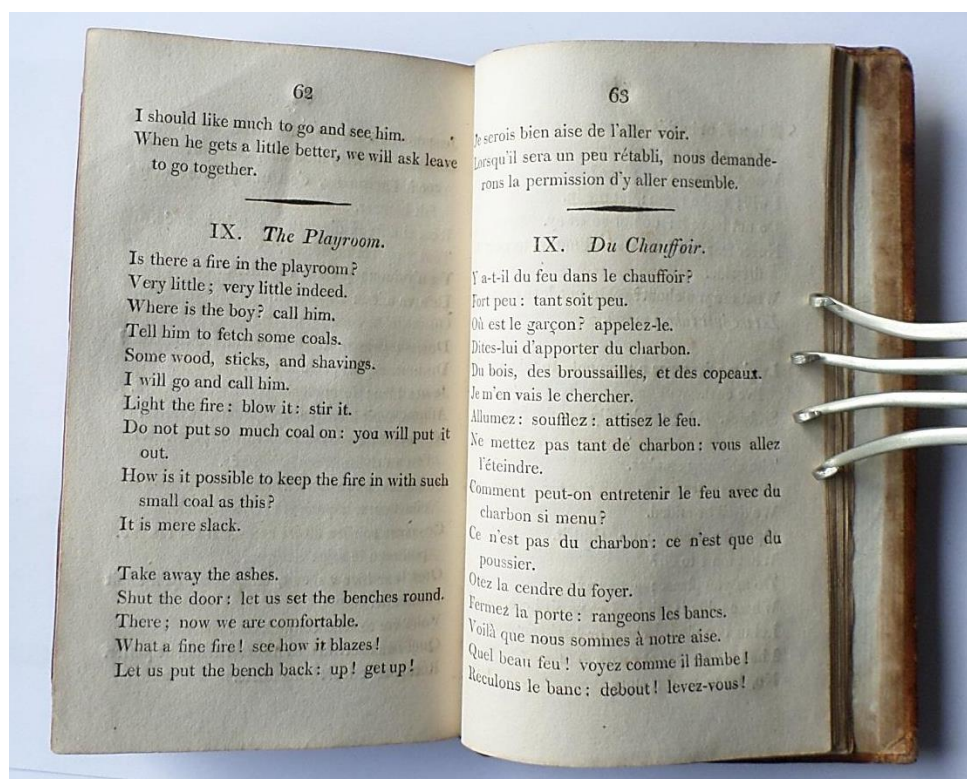 62
I should like much to go and see him.
When he gets a little better, we will ask leave
to go together.
IX. The Playroom.
Is there a fire in the playroom?
Very little; very little indeed.
Where is the boy? call him.
Tell him to fetch some coals.
Some wood, sticks, and shavings.
I will go and call him.
Light the fire: blow it: stir it.
Do not put so much coal on: you will put it
out.
How is it possible to keep the fire in with such
small coal as this?
It is mere slack.
Take away the ashes.
Shut the door: let us set the benches round.
There; now we are comfortable.
What a fine fire! see how it blazes!
Let us put the bench back: up! get up!
63
Je serois bien aise de l'aller voir.
Lorsqu'il sera un peu rétabli, nous demande-
rons la permission d'y aller ensemble.
IX. Du Chauffoir.
Y a-t-il du feu dans le chauffoir?
Fort peu: tant soit peu.
Où est le garçon? appelez-le.
Dites-lui d'apporter du charbon.
Du bois, des broussailles, et des copeaux.
Je m'en vais le chercher.
Allumez: soufflez: attisez le feu.
Ne mettez pas tant de charbon: vous allez
l'éteindre.
Comment peut-on entretenir le feu avec du
charbon si menu?
Ce n'est pas du charbon: ce n'est que du
poussier.
Otez la cendre du foyer.
Fermez la porte: rangeons les bancs.
Voilà que nous sommes à notre aise.
Quel beau feu! voyez comme il flambe!
Reculons le banc: debout! levez-vous!